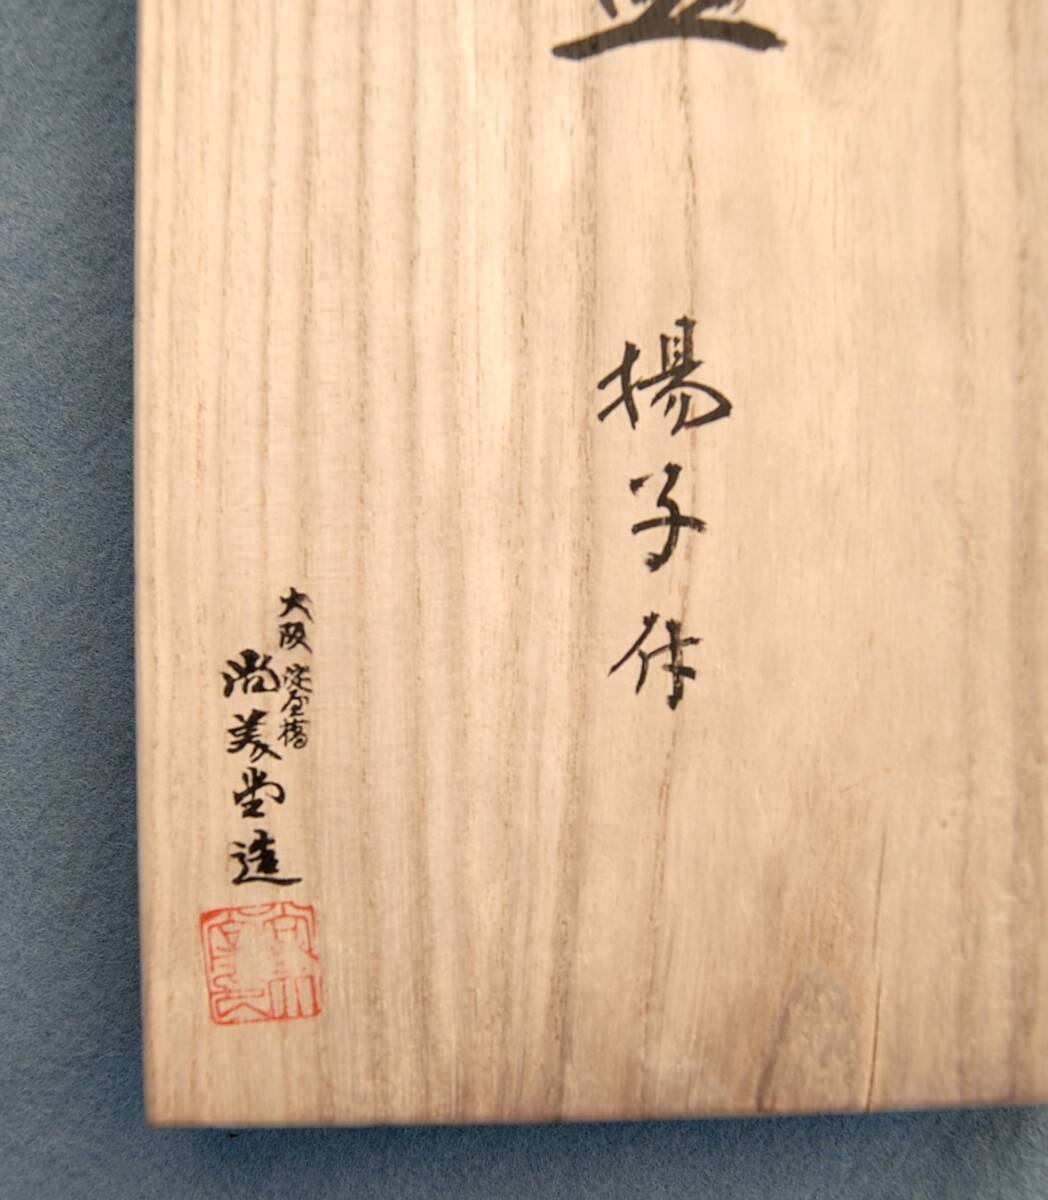 揚子作
大阪淀屋橋
尚美堂造